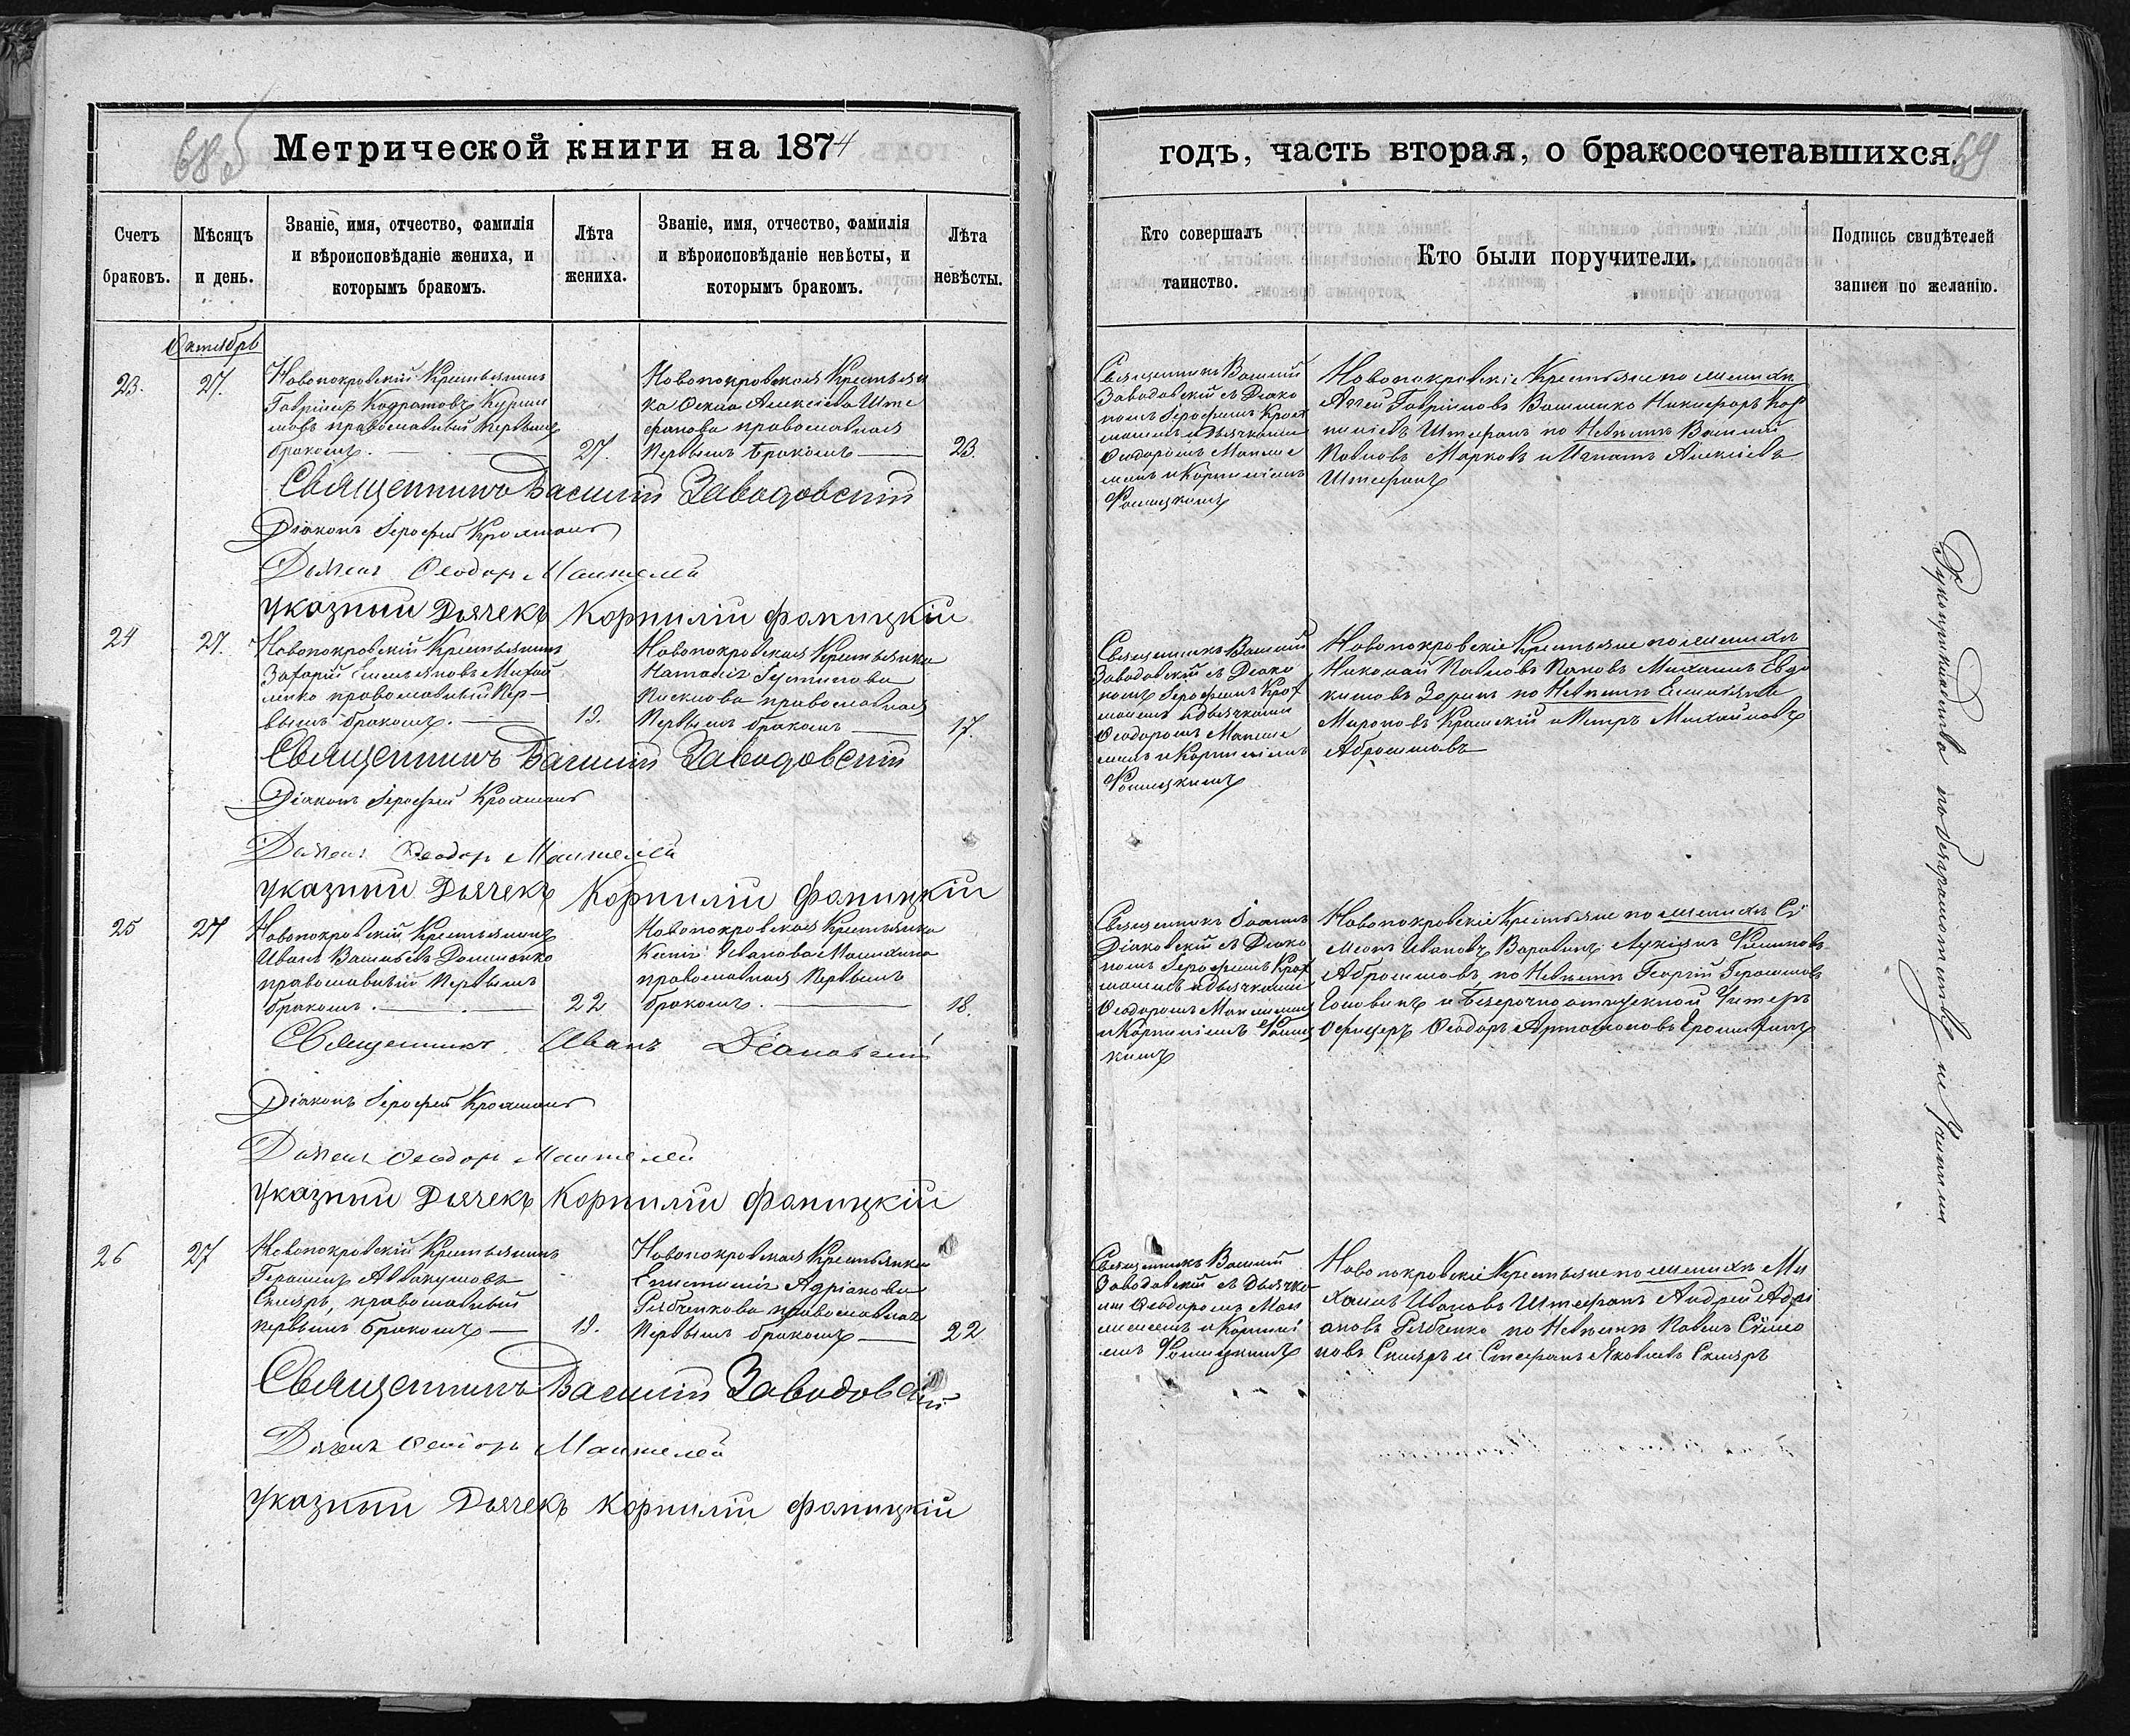 68об
Метрической книги на 1874
Счетъ браковъ.
Мѣсяцъ и день.
Званіе, имя, отчество, фамилія и вѣроисповѣданіе жениха, и которымъ бракомъ.
Лѣта жениха.
Званіе, имя, отчество, фамилія и вѣроисповѣданіе невѣсты, и которымъ бракомъ.
Лѣта невѣсты.
Октябрь
23.
27.
Новопокровскій Крестьянинъ
православный первымъ
бракомъ.
27.
Новопокровская Крестьян
ка Алексіева Ште
фанова православная
Первымъ бракомъ
23.
Священникъ Василій Заводовскій
Діаконъ Іерофей
Дьячекъ Ѳеодоръ
Указный Дьячекъ Корнилій Фоницкій
24
27.
Новопокровскій Крестьянинъ
Захарій Емельяновъ Михай
ленко православный Пер-
вымъ бракомъ.
19.
Новопокровская Крестьянка
Наталія Густинова
православная
Первымъ бракомъ
17.
Священникъ Василій Заводовскій
Діаконъ Іерофей
Дьячекъ Ѳеодоръ
Указный Дьячекъ Корнилій Фоницкій
25
27
Новопокровскій Крестьянинъ
Иванъ Васильевъ
православный Первымъ
бракомъ.
22
Новопокровская Крестьянка
Ксенія Иванова
православная Первымъ
бракомъ.
18.
Священникъ Иванъ Діаковскій
Діаконъ Іерофей
Дьячекъ Ѳеодоръ
Указный Дьячекъ Корнилій Фоницкій
26
27
Новопокровскій Крестьянинъ
Герасимъ Аввакумовъ
Скляръ, православный
первымъ бракомъ
19.
Новопокровская Крестьянка
Епистимія Адріанова
Рябченкова православная
Первымъ бракомъ
22
Священникъ Василій Заводовскій
Дьячекъ Ѳеодоръ
Указный Дьячекъ Корнилій Фоницкій
годъ, часть вторая, о бракосочетавшихся.
69
Кто совершалъ таинство.
Кто были поручители.
Подпись свидѣтелей записи по желанію.
Священникъ Василій
Заводовскій съ Діако
номъ Іерофеемъ
и дьячками
Ѳеодоромъ
и Корниліемъ
Фоницкимъ
Новопокровскіе Крестьяне по женихѣ
Гавріиловъ Никифоръ Кор
ниліевъ Штефанъ по Невѣстѣ Василій
Павловъ Марковъ и Игнатъ Алексіевъ
Штефанъ
Священникъ Василій
Заводовскій съ Діако
номъ Іерофеемъ
и дьячками
Ѳеодоромъ
и Корниліемъ
Фоницкимъ
Новопокровскіе Крестьяне по женихѣ
Николай Павловъ Поповъ Михаилъ Евдо
кимовъ по Невѣстѣ Емельянъ
Мироновъ и Петръ Михайловъ
Абросимовъ
Священникъ Іоаннъ
Діаковскій съ Діако
номъ Іерофеемъ
и дьячками
Ѳеодоромъ
и Корниліемъ Фониц
кимъ
Новопокровскіе Крестьяне по женихѣ Сі
меонъ Ивановъ Лукіянъ Филиповъ
Абросимовъ, по Невѣстѣ Георгій Герасимовъ
Головинъ и Безсрочноотпускной Унтеръ
Офицеръ Ѳеодоръ Артамоновъ
Священникъ Василій
Заводовскій съ Дьячка
ми Ѳеодоромъ
и Корнилі
емъ Фоницкимъ
Новопокровскіе Крестьяне по женихѣ Ми
хаилъ Ивановъ Штефанъ Андрей Адрі
ановъ Рябченко по Невѣстѣ Павелъ Сімео
новъ Скляръ и Стефанъ Яковлевъ Скляръ
Рукоприкладства по безграмотству не учинили